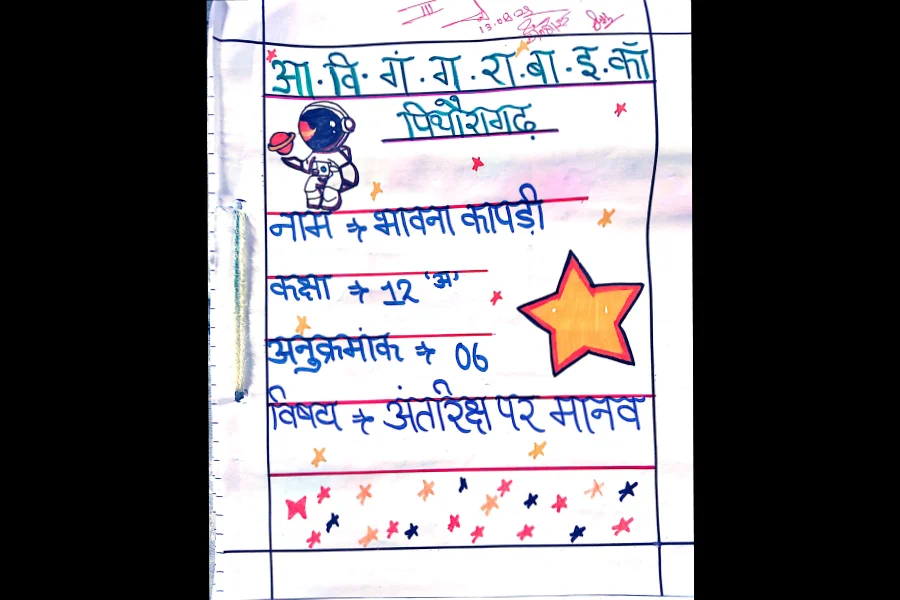 III
13.08.23
आ. वि. गं. ग. रा. बा. इ. कॉ
पिथौरागढ़
नाम → भावना कापडी
कक्षा → 12 'अ'
अनुक्रमांक → 06
विषय → अंतरिक्ष पर मानव